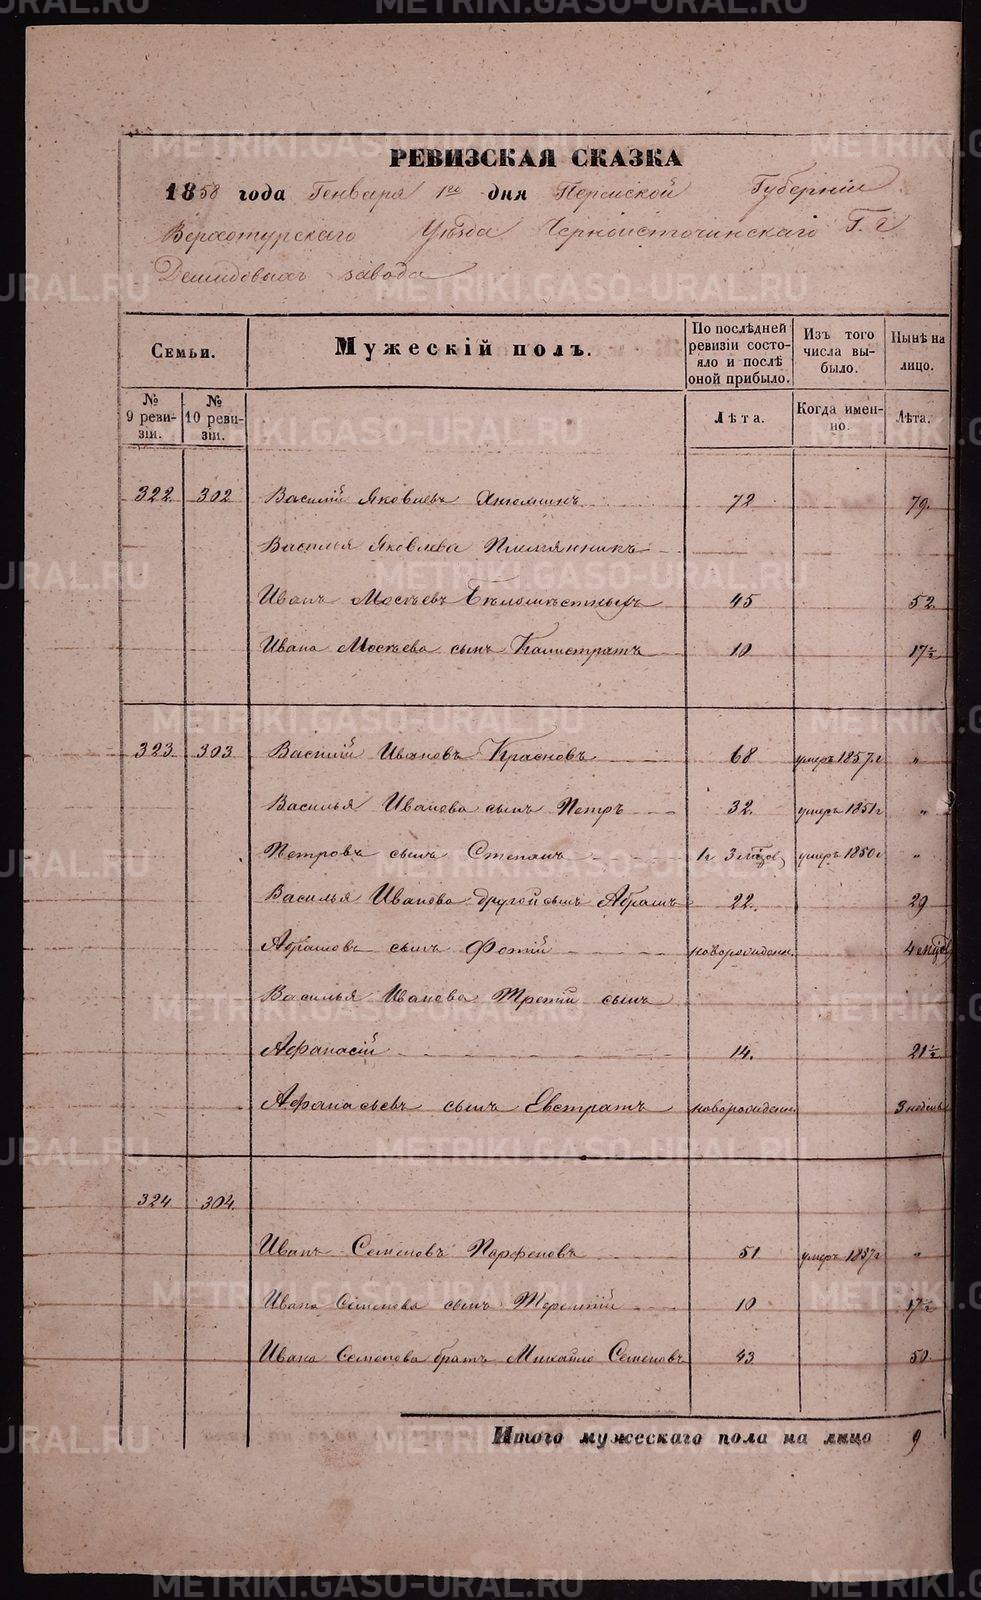 РЕВИЗСКАЯ СКАЗКА
1858 года Генваря 1го дня Пермской Губерніи
Верхотурскаго Уѣзда Черноисточинскаго Г. г
Демидовыхъ завода
Семьи.
Мужескій полъ.
По послѣдней ревизіи состояло и послѣ оной прибыло.
Изъ того числа выбыло.
Нынѣ на лицо.
№ 9 ревизіи.
№ 10 ревизіи.
Лѣта.
Когда именно.
Лѣта.
322. 302 Василій Яковлевъ 72 79.
Василья Яковлева Племянникъ
Иванъ Мосѣевъ Бѣломѣстныхъ 45 52.
Ивана Мосѣева сынъ Калистратъ 10 17½
323. 303 Василій Ивановъ Красновъ 68 умеръ 1857.г „
Василья Иванова сынъ Петръ 32. умеръ 1851г „
Петровъ сынъ Степанъ 1г 3 умеръ 1850г „
Василья Иванова другой сынъ Абрамъ 22. 29
Абрамовъ сынъ Фотій новорожден. 4
Василья Иванова Третій сынъ
Афанасій 14. 21½
Афанасьевъ сынъ Евстратъ новорожден. 3 недѣль
324. 304.
Иванъ Семеновъ Парфеновъ 51 умеръ 1857г „
Ивана Семенова сынъ Терентій 10 17½
Ивана Семенова братъ Михайло Семеновъ 43 50
Итого мужескаго пола на лицо 9
METRIKI.GASO-URAL.RU